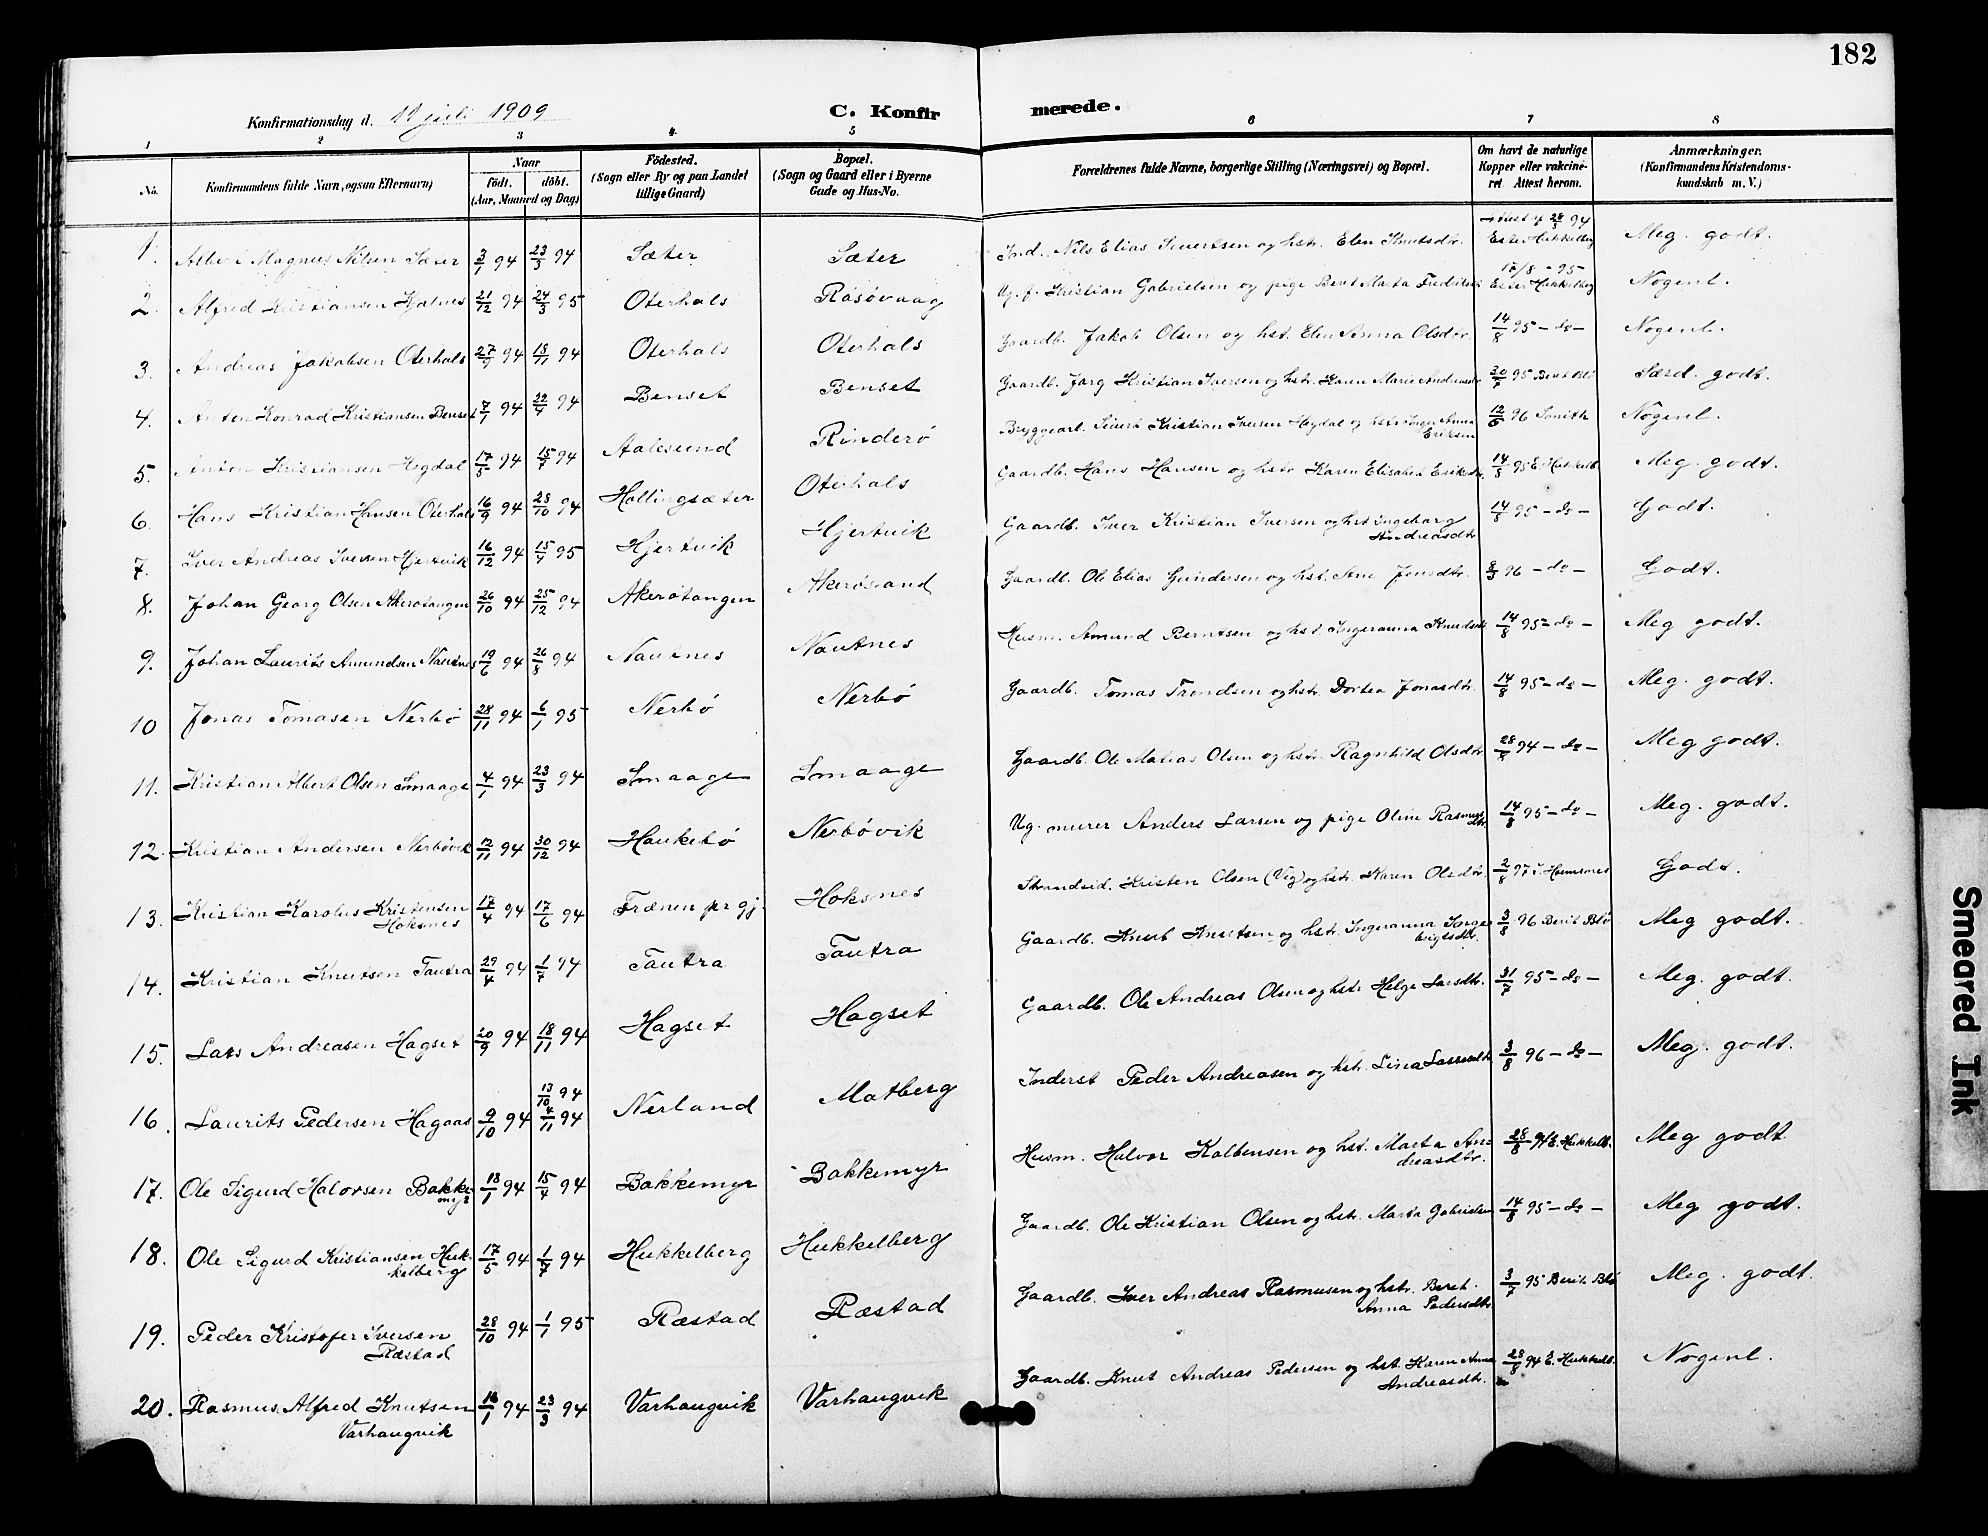 182
Konfirmationsdag d. 11 juli 1909
C. Konfirmerede.
1 2 3 4 5 6 7 8
No.
Konfirmandens fulde Navn, ogsaa Efternavn)
Naar
födt. döbt.
(Aar, Maaned og Dag)
Födested.
(Sogn eller By og paa Landet
tillige Gaard)
Bopæl.
(Sogn og Gaard eller i Byerne
Gade og Hus-No.
Forældrenes fulde Navne, borgerlige Stilling (Næringsvei) og Bopæl.
Om havt de naturlige
Kopper eller vakcine-
ret Attest herom.
Anmærkninger.
(Konfirmandens Kristendoms-
kundskab m. V.)
1. Magnus Nilsen Sæter 3/1 94 23/3 94 Sæter Sæter Ind. Nils Elias Sivertsen og hstr. Elen Knutsdtr. Attest af 28/3 94 Ester Hukkelberg Meg. godt.
2. Alfred Kristiansen 21/12 94 24/3 95 Oterhals Rosøvaag Ug. f. Kristian Gabrielsen og pige Berit Marta 17/8 - 95 Ester Hukkelberg Nogenl.
3. Andreas Jakobsen Oterhals 27/9 94 18/11 94 Oterhals Oterhals Gaardb. Jakob Olsen og hst. Elen Anna Olsdtr. 14/8 95 - do - Nogenl.
4. Anton Konrad Kristiansen Benset 7/1 94 22/4 94 Benset Benset Gaardb. Jørg Kristian Iversen og hstr. Karen Marie Andreasdtr. 20/7 95 Berit Blø Særd. godt.
5. Anton Kristiansen Hegdal 17/5 94 15/7 94 Aalesund Rinderö Bryggearb. Sivert Kristian Iversen Hegdal og hstr. Inger Anna Eriksen 12/6 96 Smith Nogenl.
6. Hans Kristian Hansen Oterhals 16/9 94 28/10 94 Hollingsæter Oterhals Gaardb. Hans Hansen og hstr. Karen Elisabet Eriksdtr. 14/8 95 E. Hukkelb. Meg. godt.
7. Iver Andreas Iversen Hjertvik 16/12 94 15/4 95 Hjertvik Hjertvik Gaardb. Iver Kristian Iversen og hst. Ingeborg Andreasdtr. 14/8 95 - do - Godt.
8. Johan Georg Olsen Akerøtangen 26/10 94 25/12 94 Akerøtangen Akerøsand Gaardb. Ole Elias Gundersen og hst. Ane Jensdtr. 8/3 96 - do - Godt.
9. Johan Laurits Amundsen Nautnes 19/6 94 26/8 94 Nautnes Nautnes Husm. Amund Berntsen og hst. Ingeranna Knudsdtr. 14/8 95 - do - Meg godt.
10 Jonas Tomasen Nerbö 28/11 94 6/1 95 Nerbö Nerbö Gaardb. Tomas Trondsen og hstr. Dortea Jonasdtr. 14/8 95 - do - Meg. godt.
11. Kristian Albert Olsen Smaage 4/1 94 23/3 94 Smaage Smaage Gaardb. Ole Matias Olsen og hstr. Ragnhild Olsdtr. 28/8 94 - do - Meg godt.
12. Kristian Andersen Nerbövik 12/11 94 30/12 94 Haukebö Nerbövik Ug. murer Anders Larsen og pige Oline Rasmusdtr. 14/8 95 - do - Meg. godt.
13. Kristian Karolus Kristensen Hoksnes 17/4 94 17/6 94 Frænen pr gj. Hoksnes Strandsid. Kristen Olsen (Vig) og hstr. Karen Olsdtr. 2/8 97 Godt.
14. Kristian Knutsen Tautra 29/4 94 1/7 94 Tautra Tautra Gaardb. Knut Knutsen og hstr. Ingeranna 3/8 96 Berit Blø Meg godt.
15. Lars Andreasen Hagset 20/9 94 18/11 94 Hagset Hagset Gaardb. Ole Andreas Olsen og hstr. Helge Larsdtr. 31/7 95 - do - Meg. godt.
16. Laurits Pedersen Hagaas 9/10 94 13/10 94 4/11 94 Nerland Matberg Inderst Peder Andreasen og hstr. Lina Lassesdtr. 3/8 96 - do - Meg. godt.
17. Ole Sigurd Halvorsen Bakkemyr 18/1 94 15/4 94 Bakkemyr Bakkemyr Husm. Halvor Kolbensen og hst. Marta Andreasdtr. 28/8 94 E. Hukkelb. Meg godt.
18. Ole Sigurd Kristiansen Hukkelberg 17/5 94 1/7 94 Hukkelberg Hukkelberg Gaardb. Ole Kristian Olsen og hstr. Marta Gabrielsen 14/8 95 - do - Meg godt.
19. Peder Kristofer Iversen Ræstad 28/10 94 1/1 95 Ræstad Ræstad Gaardb. Iver Andreas Rasmusen og hstr. Beret Anna Pedersdtr. 3/7 95 Berit Blø Meg. godt.
20. Rasmus Alfred Knutsen Varhaugvik 16/1 94 23/3 94 Varhaugvik Varhaugvik Gaardb. Knut Andreas Pedersen og hst. Karen Anna Andreasdtr. 28/8 94 E. Hukkelb. Nogenl.
Smeared Ink